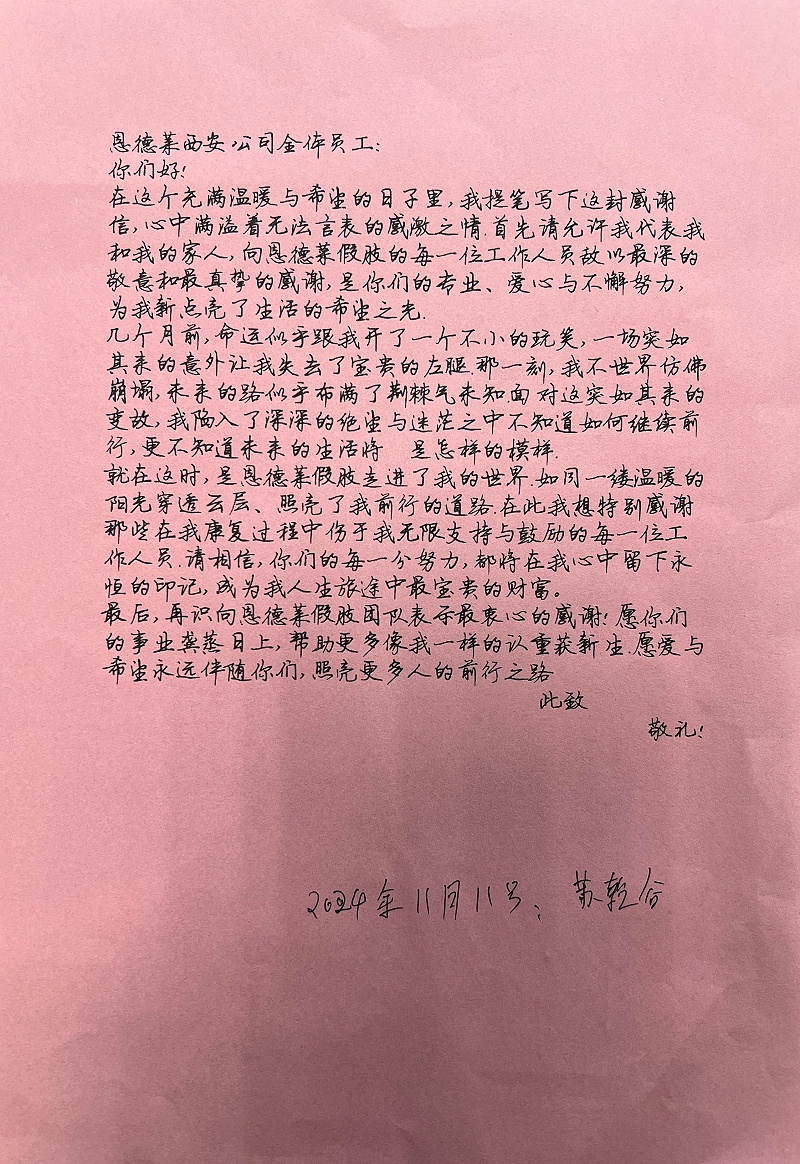 恩德莱西安公司全体员工:
你们好!
在这个充满温暖与希望的日子里,我提笔写下这封感谢
信,心中满溢着无法言表的感激之情.首先请允许我代表我
和我的家人,向恩德莱假肢的每一位工作人员致以最深的
敬意和最真挚的感谢,是你们的专业、爱心与不懈努力,
为我新点亮了生活的希望之光.
几个月前,命运似乎跟我开了一个不小的玩笑,一场突如
其来的意外让我失去了宝贵的左腿.那一刻,我不世界仿佛
崩塌,未来的路似乎布满了荆棘气未知面对这突如其来的
变故,我陷入了深深的绝望与迷茫之中不知道如何继续前
行,更不知道未来的生活将 是怎样的模样.
就在这时,是恩德莱假肢走进了我的世界.如同一缕温暖的
阳光穿透云层、照亮了我前行的道路.在此我想特别感谢
那些在我康复过程中伤于我无限支持与鼓励的每一位工
作人员.请相信,你们的每一分努力,都将在我心中留下永
恒的印记,成为我人生旅途中最宝贵的财富。
最后,再识向恩德莱假肢团队表示最衷心的感谢!愿你们
的事业蒸蒸日上,帮助更多像我一样的认重获新生.愿爱与
希望永远伴随你们,照亮更多人的前行之路
此致
敬礼!
2024年11月11号:苏乾合